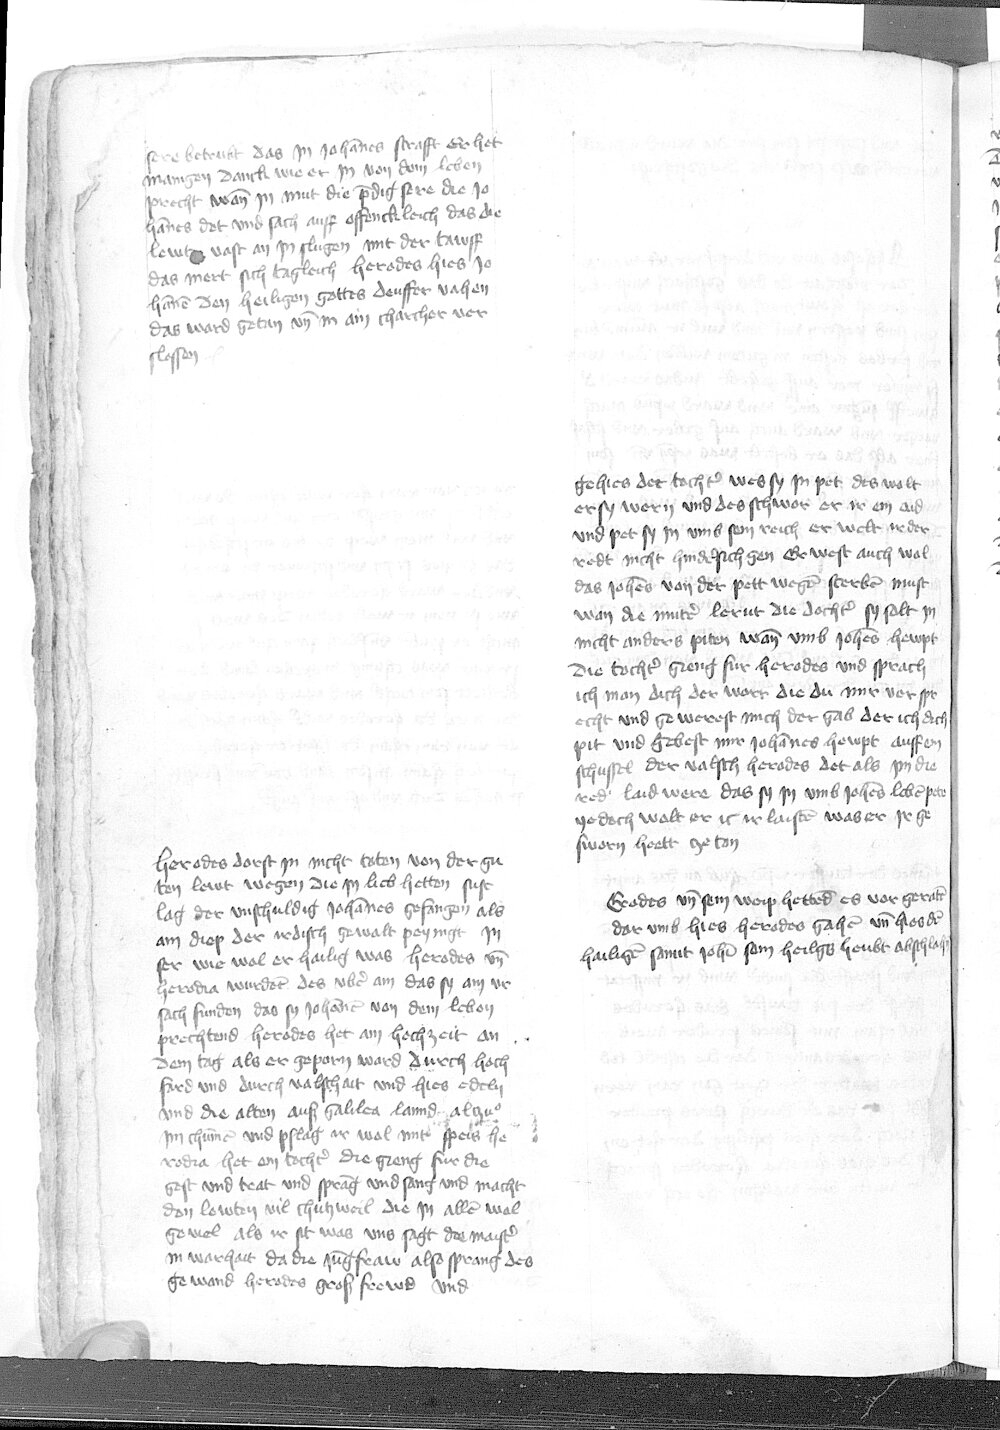 sere betrubt das in johānes strafft Er het
manigen danck wie er in von dem leben
precht wan̄ in mut die p̄dig sere die jo
hānes det vnd sach auff offenckleich das die
lewt vast an in slugen mit der tawff
das mert sich tagleich herodes hies jo
hānē den heiligen gottes deuffer vahen
das ward getan vn̄ in ain charcher ver
slossen
herodes dorst in nicht toten von der gu
ten lewt wegen die in lieb hetten sust
lag der vnschuldig johānes gefangen als
am diep der irdisch gewalt peyingt in
ser wie wol er hailig was herodes vn̄
herodia wurdē des vbē am das sy am vr
sach funden das sy johānē von dem leben
prechtend herodes het am hochzeit an
dem tag als er geporn ward durch hoch
fard vnd durch valschait vnd hies edely
vnd die alten auß galilea lannd alzuo
im chumē vnd pflag ir wol mit speis he
rodia het ein tocht' die gieng fur die
gest vnd trat vnd sprāg vnd sang vnd macht
den lewten vil churzweil die in allē wol
geviel als ir sit was vns sagt die maist'
in warhait da die jūgfraw also sprang des
gewand herodes groß frewd vnd
gehies der tocht' wes sy in pet des wolt
er sy wern vnd des schwor er ir ein aid
vnd pet sy in vmb sein reich er welt ir der
redt nicht hindersich gen Er west auch wol
das johēs von der pett wegē sterbē must
wan die mutē lernt die docht' sy solt in
nicht anders piten wan̄ vmb johēs hewpt
Die tocht' gieng fur herodes vnd sprach
ich man dich der wort die du mir verspr
echt vnd gewerest mich der gab der ich dich
pit vnd gebest mir johānes hewpt auff ein
schussel der valsch herodes det als im die
red laid were das sy in vmb johēs lebē pete
yedoch wolt er ir laistē was er ir ge
sworn heett ze ton
Erodes vn̄ sein weip hettēd es vor geratē
dar vmb hies herodes gahē vn̄ hies dē
hailigē sannt johē sein heilgs heubt abschlahn